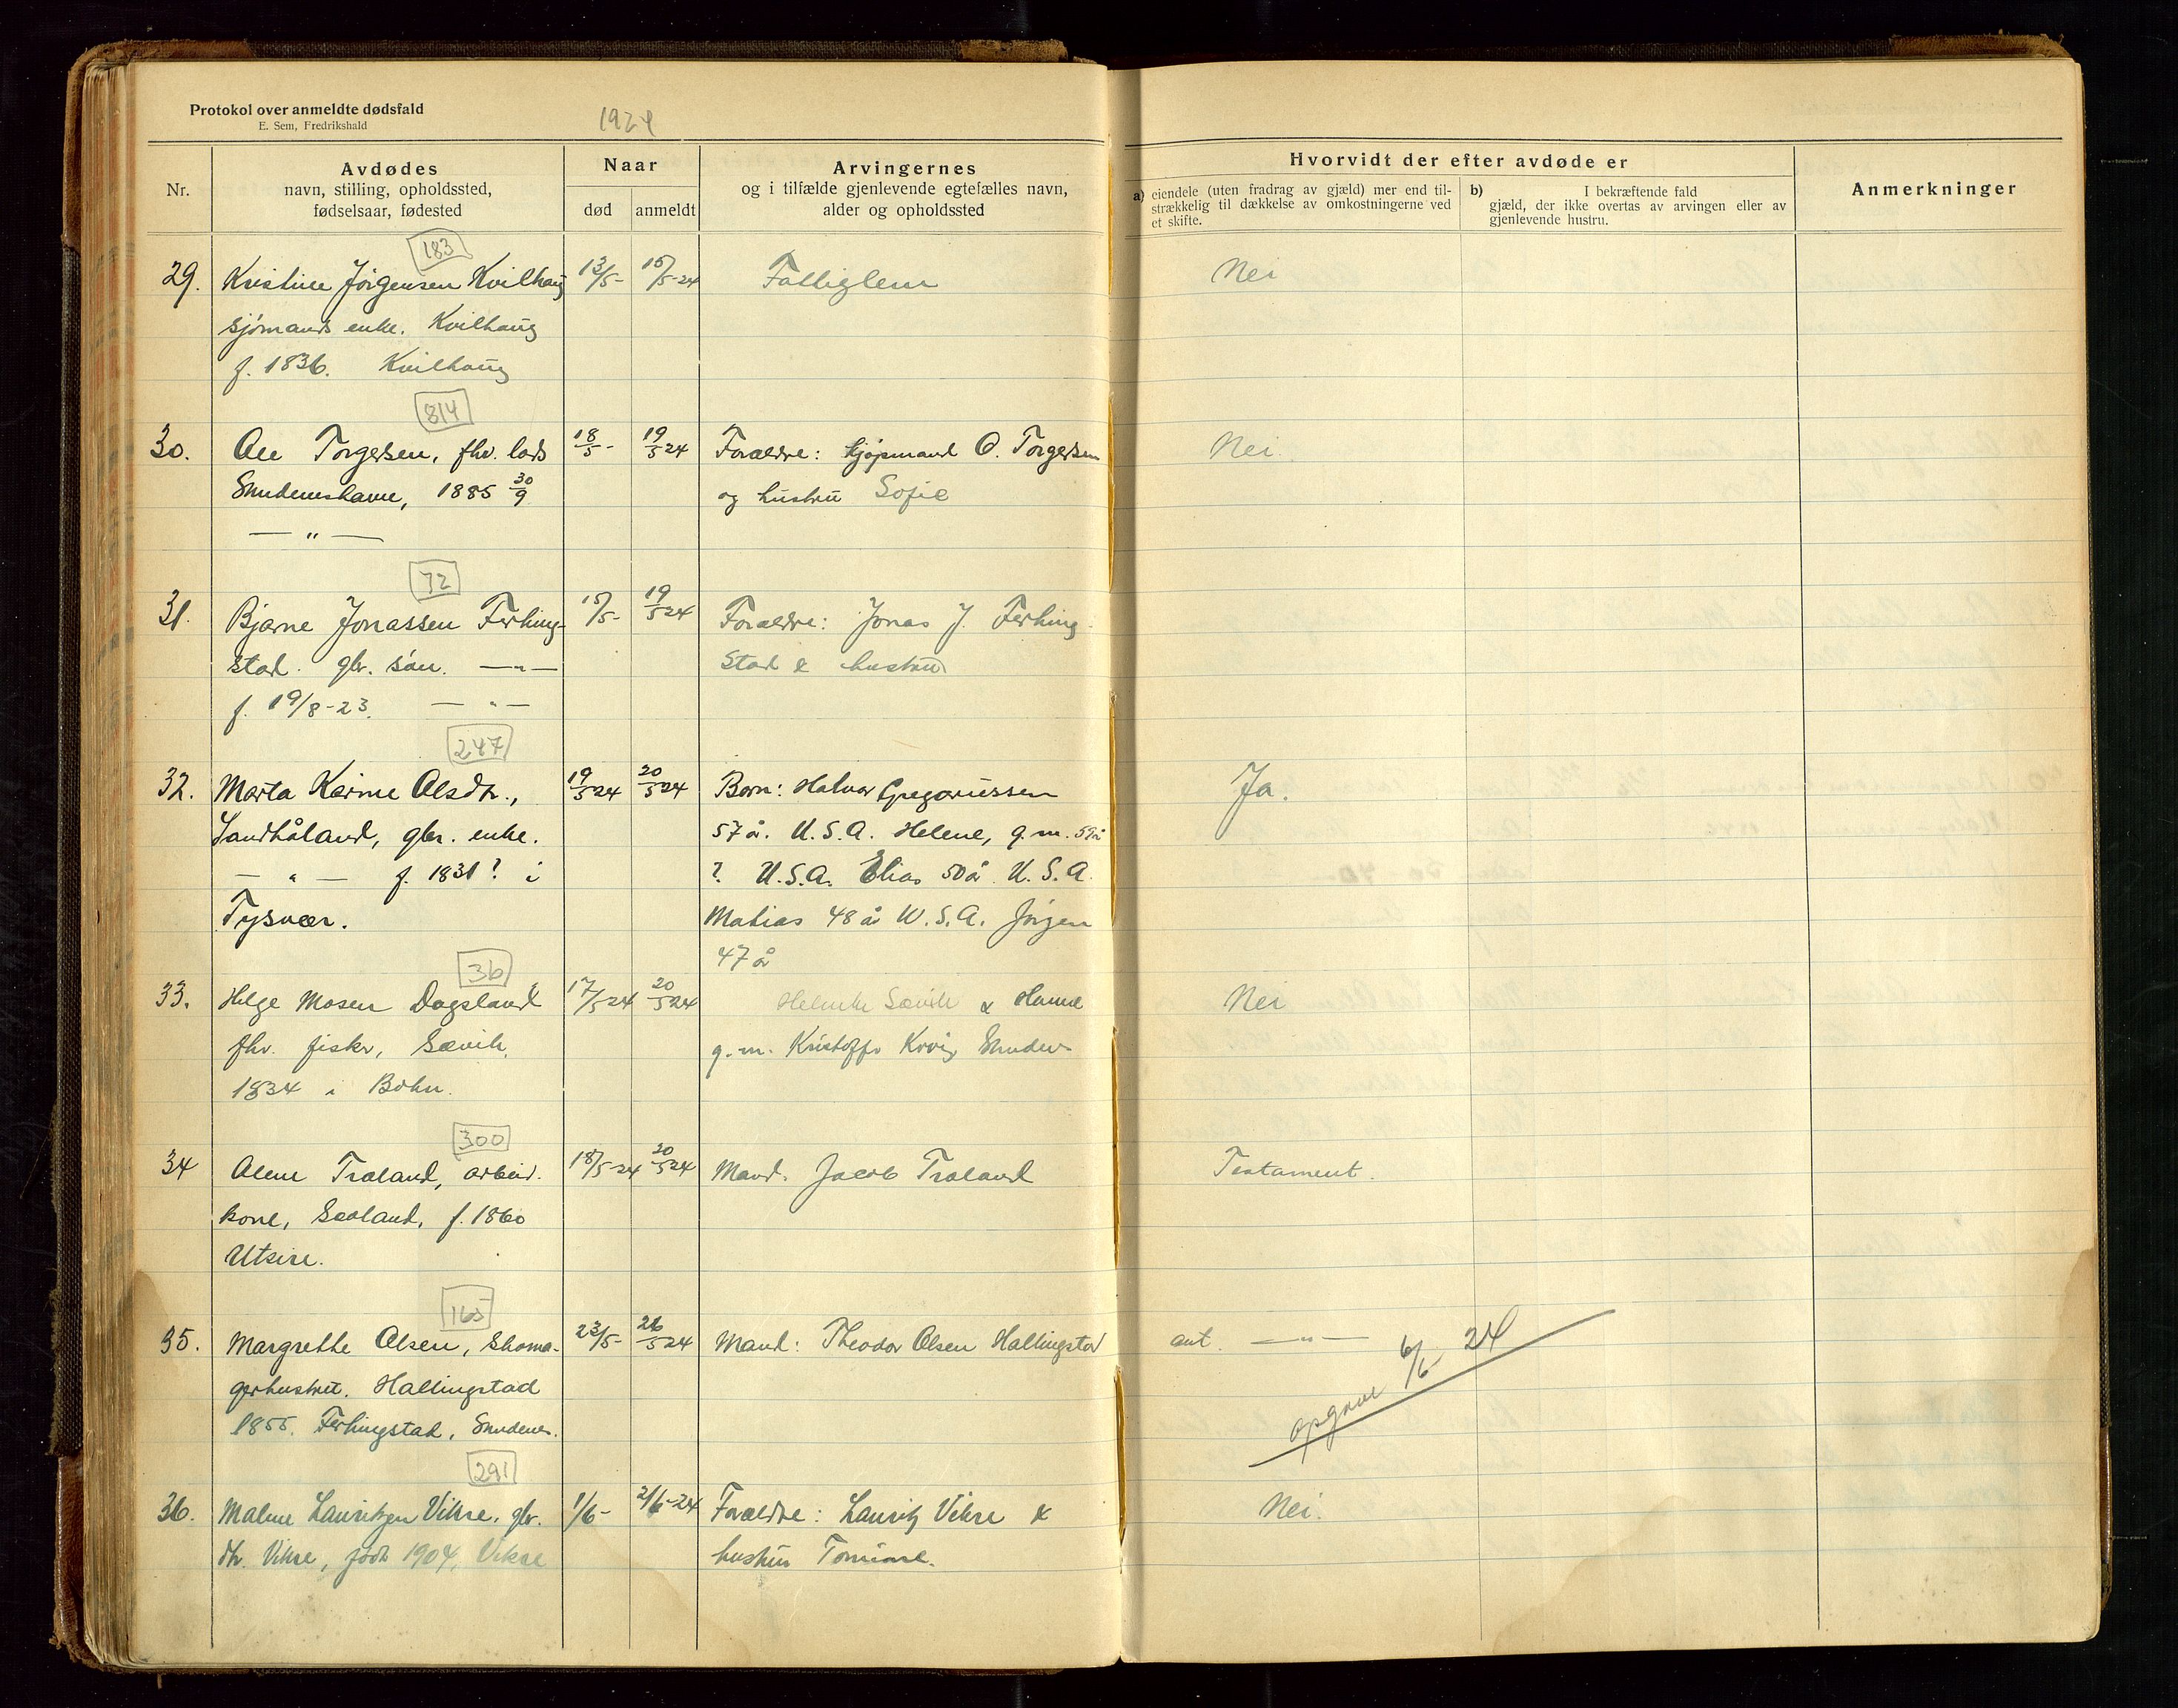 Protokol over anmeldte dødsfald
E. Sem, Fredrikshald
1924
Nr.
Avdødes
navn, stilling, opholdssted,
fødselsaar, fødested
Naar
død
anmeldt
Arvingernes
og i tilfælde gjenlevende egtefælles navn,
alder og opholdssted
Hvorvidt der efter avdøde er
a) eiendele (uten fradrag av gjæld) mer end til-
strækkelig til dækkelse av omkostningerne ved
et skifte.
b) I bekræftende fald
gjæld, der ikke overtas av arvingen eller av
gjenlevende hustru.
Anmerkninger
183
29. Kristine Jørgensen Kvilhaug 13/5- 15/5-24 Fattiglem Nei
sjømands enke. Kvilhaug
f. 1836. Kvilhaug
814
30. Ole Torgersen, fhv. lods 18/5- 19/5 24 Forældre: kjøpmand O. Torgersen Nei.
Skudeneshavn, 1885 30/9 og hustru Sofie
— " —
72
31. Bjarne Jonassen Ferking- 15/5- 19/5 24 Forældre: Jonas J. Ferking-
stad. gbr. søn. — " — stad & hustru
f. 19/8-23. — " —
247
32. Marta Karine Olsdtr., 19/5 24 20/5 24 Børn: Halvor Gregoriussen Ja.
Sandhåland, gbr. enke. 57 år. U.S.A. Helene, g.m.
— " — f. 1831? i ? U.S.A. Elias 50 år. U.S.A.
Tysvær. Matias 48 år U.S.A. Jørgen
47 år
36
33. Helge Mosen Dagsland 17/5-24 20/5 24 Sævik & Hanne Nei
fhv. fisker, Sævik, g.m. Kristoffer Skuden-
1834 i Bokn.
300
34 Olene Traland, arbeid. 18/5-24 20/5 24 Mand. Jacob Traland Testament.
kone, f. 1860
Utsire.
165
35. Margrethe Olsen, skoma- 23/5- 26/5 24 Mand: Theodor Olsen Hallingstad ant. — " —
gerhustru. Hallingstad
1855. Ferkingstad, Skudenes.
opgave 6/6 24
291
36. Malene Lauritzen Vikre. gbr. 1/6- 2/6-24 Forældre: Lauritz Vikre & Nei.
dtr. Vikre, født 1904, Vikre hustru